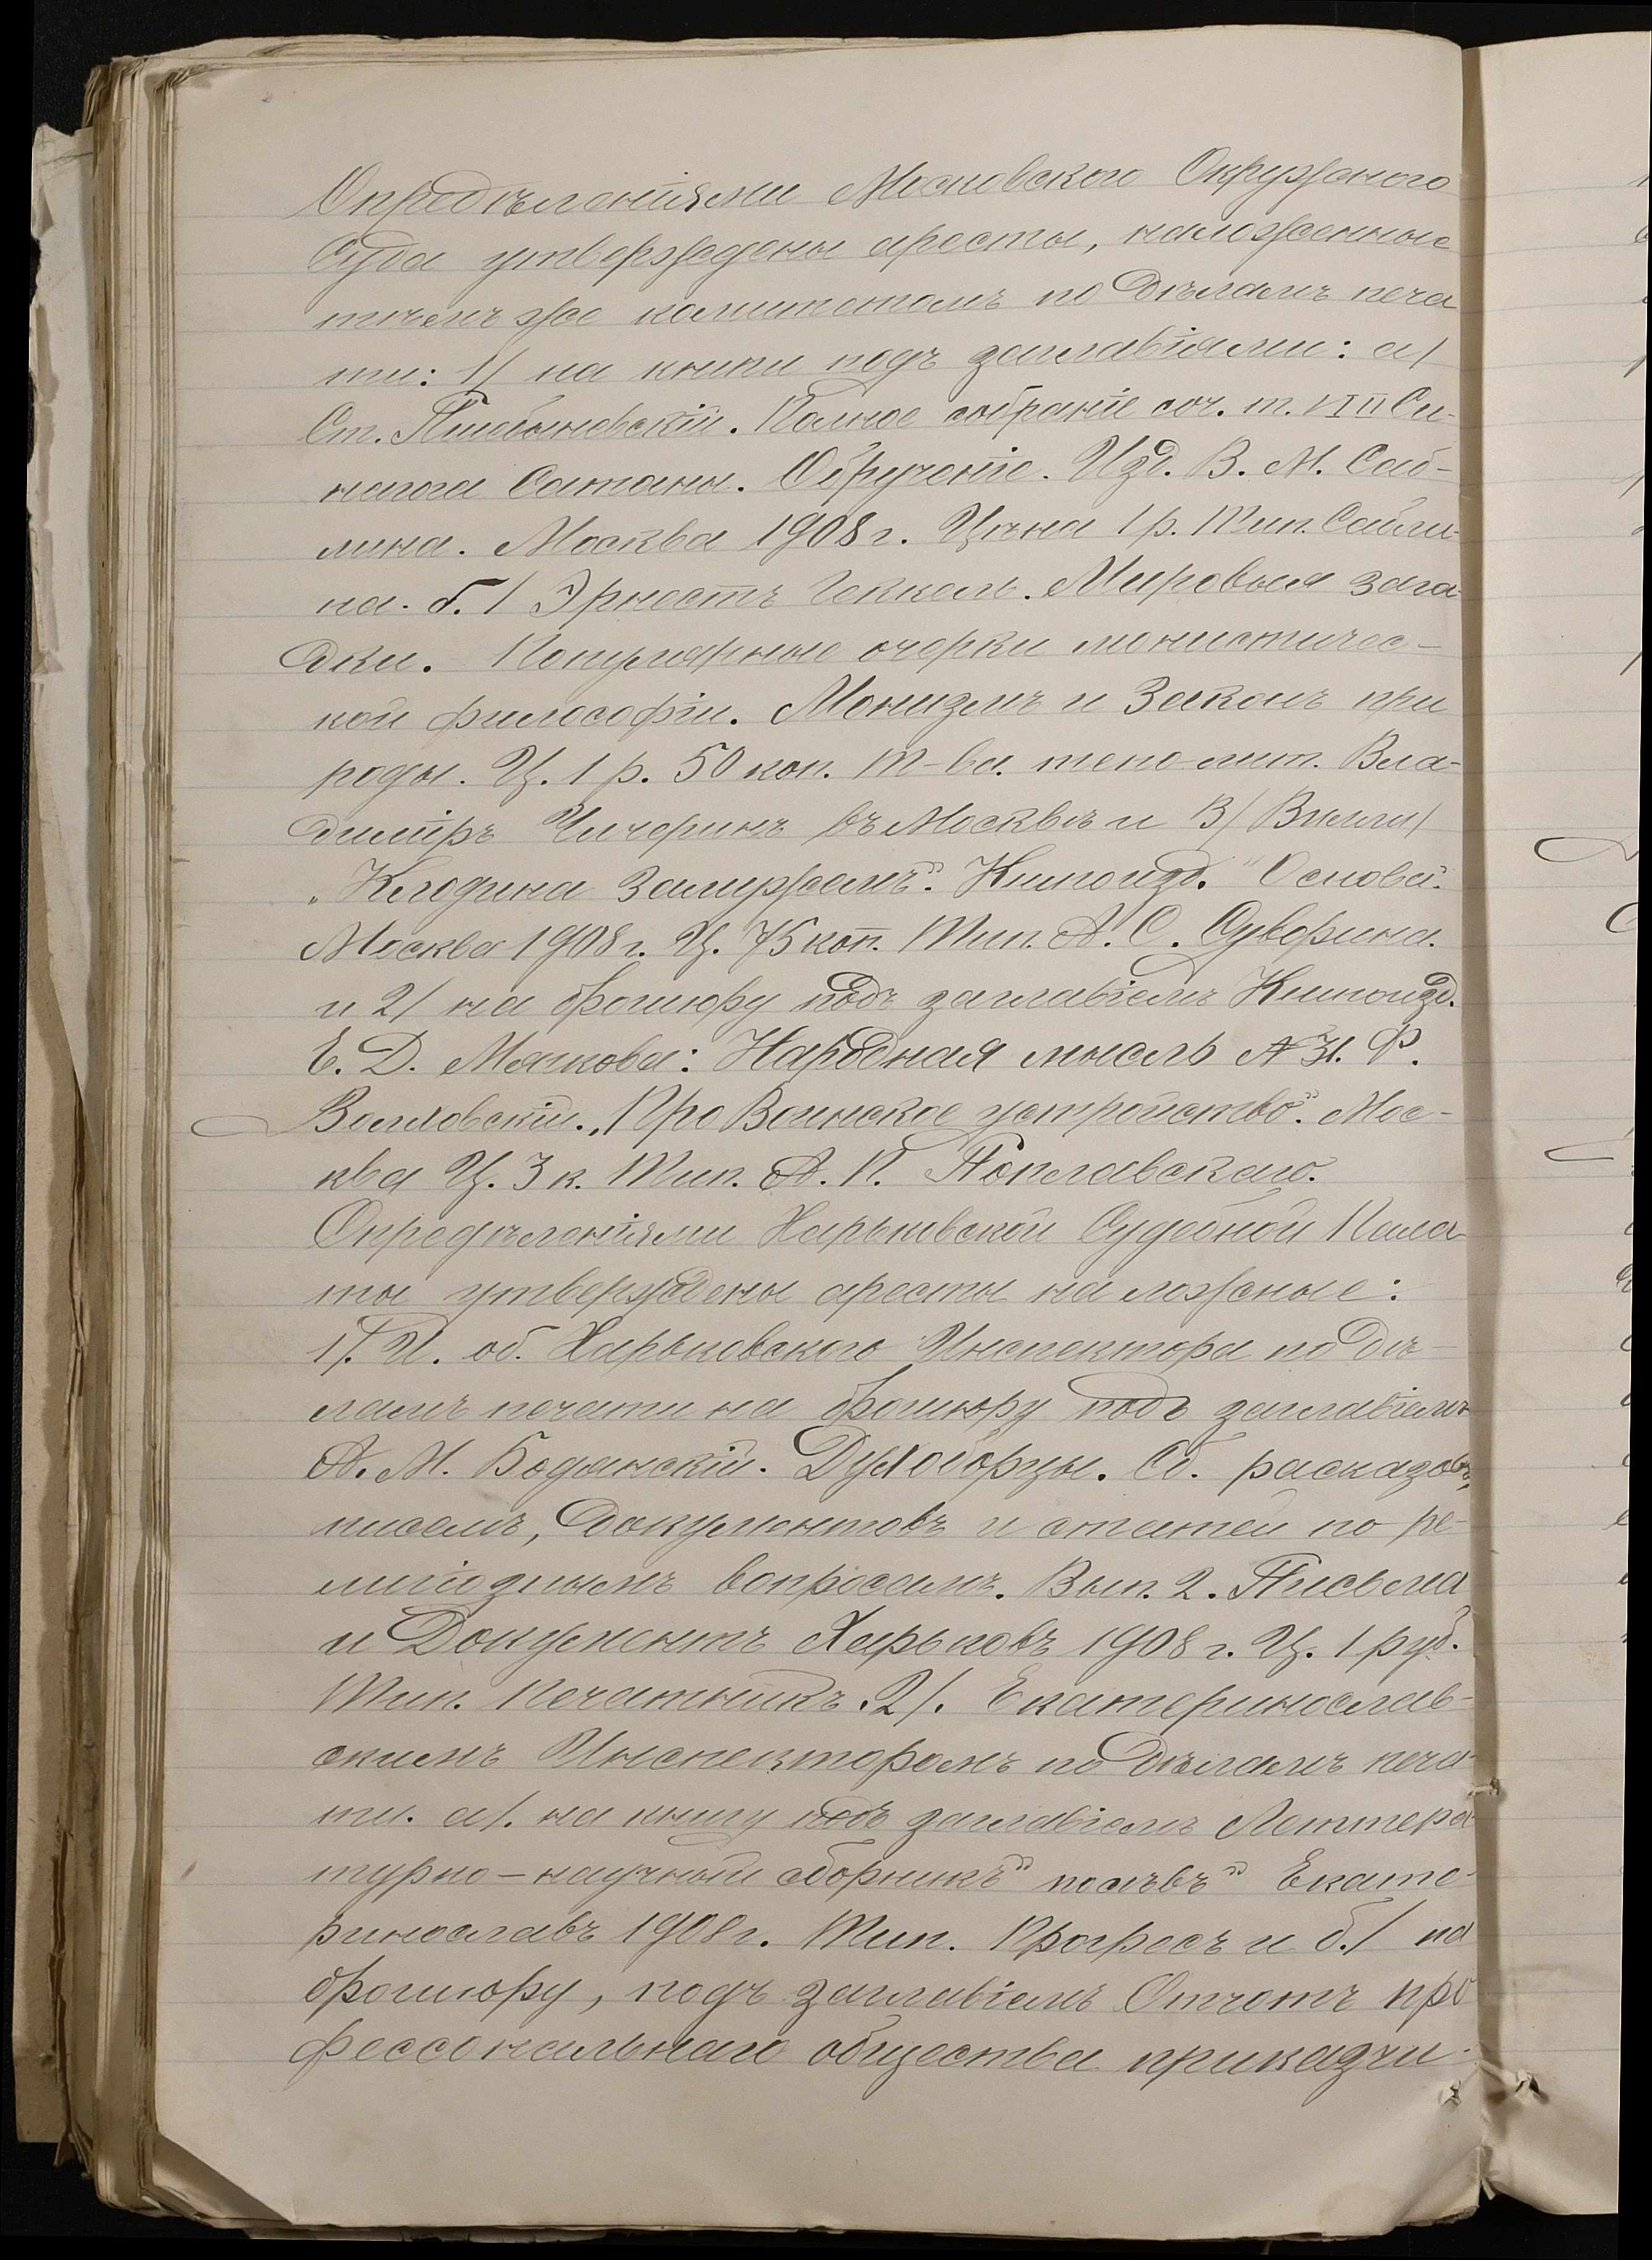 Опредѣленіями Московского Окружного
Суда утверждены аресты, наложенные
тѣмъ же комитетомъ по дѣламъ печа
ти: 1/ на книги подъ заглавіями: а/
Ст. Пшебышевскій. Полное собраніе соч. т. VIII Си-
нагога Сатаны. Обрученіе. Изд. В. М. Саб-
лина. Москва 1908 г. Цѣна 1 р. Тип. Сабли-
на. б./ Эрнестъ Геккель. Мировыя зага-
дки. Популярные очерки монистичес-
кой философіи. Монизмъ и Законъ при
роды. Ц. 1 р. 50 коп. Т-ва. типо-лит. Вла-
димiръ Чичеринъ въ Москвѣ и В/ Вилли/
„Клодина Замужемъ". Книгоизд. "Основа".
Москва 1908 г. Ц. 75 коп. Тип. А. С. Суворина.
и 2/ на брошюру подъ заглавіемъ Книгоизд.
Е. Д. Мягкова: Народная мысль № 31. Ф.
Волховскій. „Про Воинское устройство". Мос-
ква Ц. 3 к. Тип. А. П. Поплавскаго.
Опредѣленіями Харьковской Судебной Пала
ты утверждены аресты на ложеные:
1/. И. об. Харьковского Инспектора по дѣ-
ламъ печати на брошюру подъ заглавіемъ
А. М. Бодянскій. Духоборцы. Сб. расказовъ,
писемъ, документовъ и статей по ре-
лигiознымъ вопросамъ. Вып. 2. Письма
и Документъ Харьковъ 1908 г. Ц. 1 руб.
Тип. Печатникъ. 2/. Екатеринослав-
скимъ Инспекторомъ по дѣламъ печа-
ти. а/. на книгу подъ заглавіемъ Леттера
турно-научный сборникъ" посѣвъ" Екате-
ринославъ 1908 г. Тип. Прогресъ и б./ на
брошюру, подъ заглавіемъ Отчотъ про
фессональнаго общества приказчи-